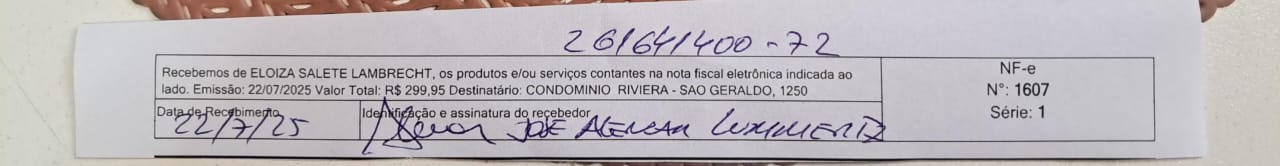 261641400-72
Recebemos de ELOIZA SALETE LAMBRECHT, os produtos e/ou serviços contantes na nota fiscal eletrônica indicada ao
lado. Emissão: 22/07/2025 Valor Total: R$ 299,95 Destinatário: CONDOMINIO RIVIERA - SAO GERALDO, 1250
NF-e
N°: 1607
Série: 1
Data de Recebimento
22/7/25
Identificação e assinatura do recebedor
JOSE ALENCAR LUMMERTZ